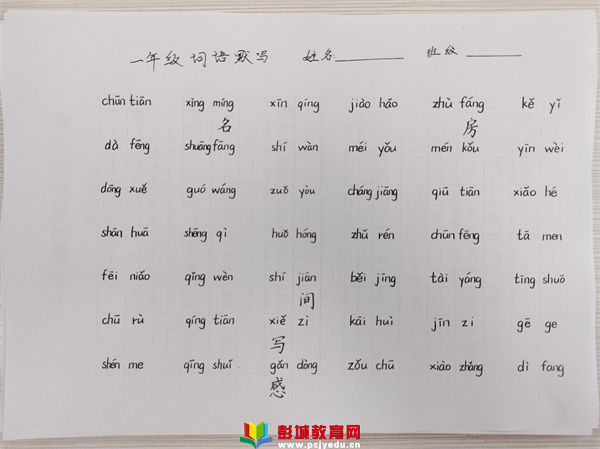 一年级 词语默写 姓名______ 班级______
chūn tiān xìng míng xīn qíng jiào hǎo zhù fáng kě yǐ
名 房
dà fēng shuāng fāng shí wàn méi yǒu mén kǒu yīn wèi
dōng xuě guó wáng zuǒ yòu cháng jiāng qiū tiān xiǎo hé
shān huā shēng qì huǒ hóng zhǔ rén chūn fēng tā men
fēi niǎo qǐng wèn shí jiān běi jīng tài yáng tīng shuō
间
chū rù qíng tiān xiě zì kāi huì jīn zi gē ge
写
shén me qīng shuǐ gǎn dòng zǒu chū xiào zhǎng dì fang
感
彭城教育网
www.pcjyedu.cn